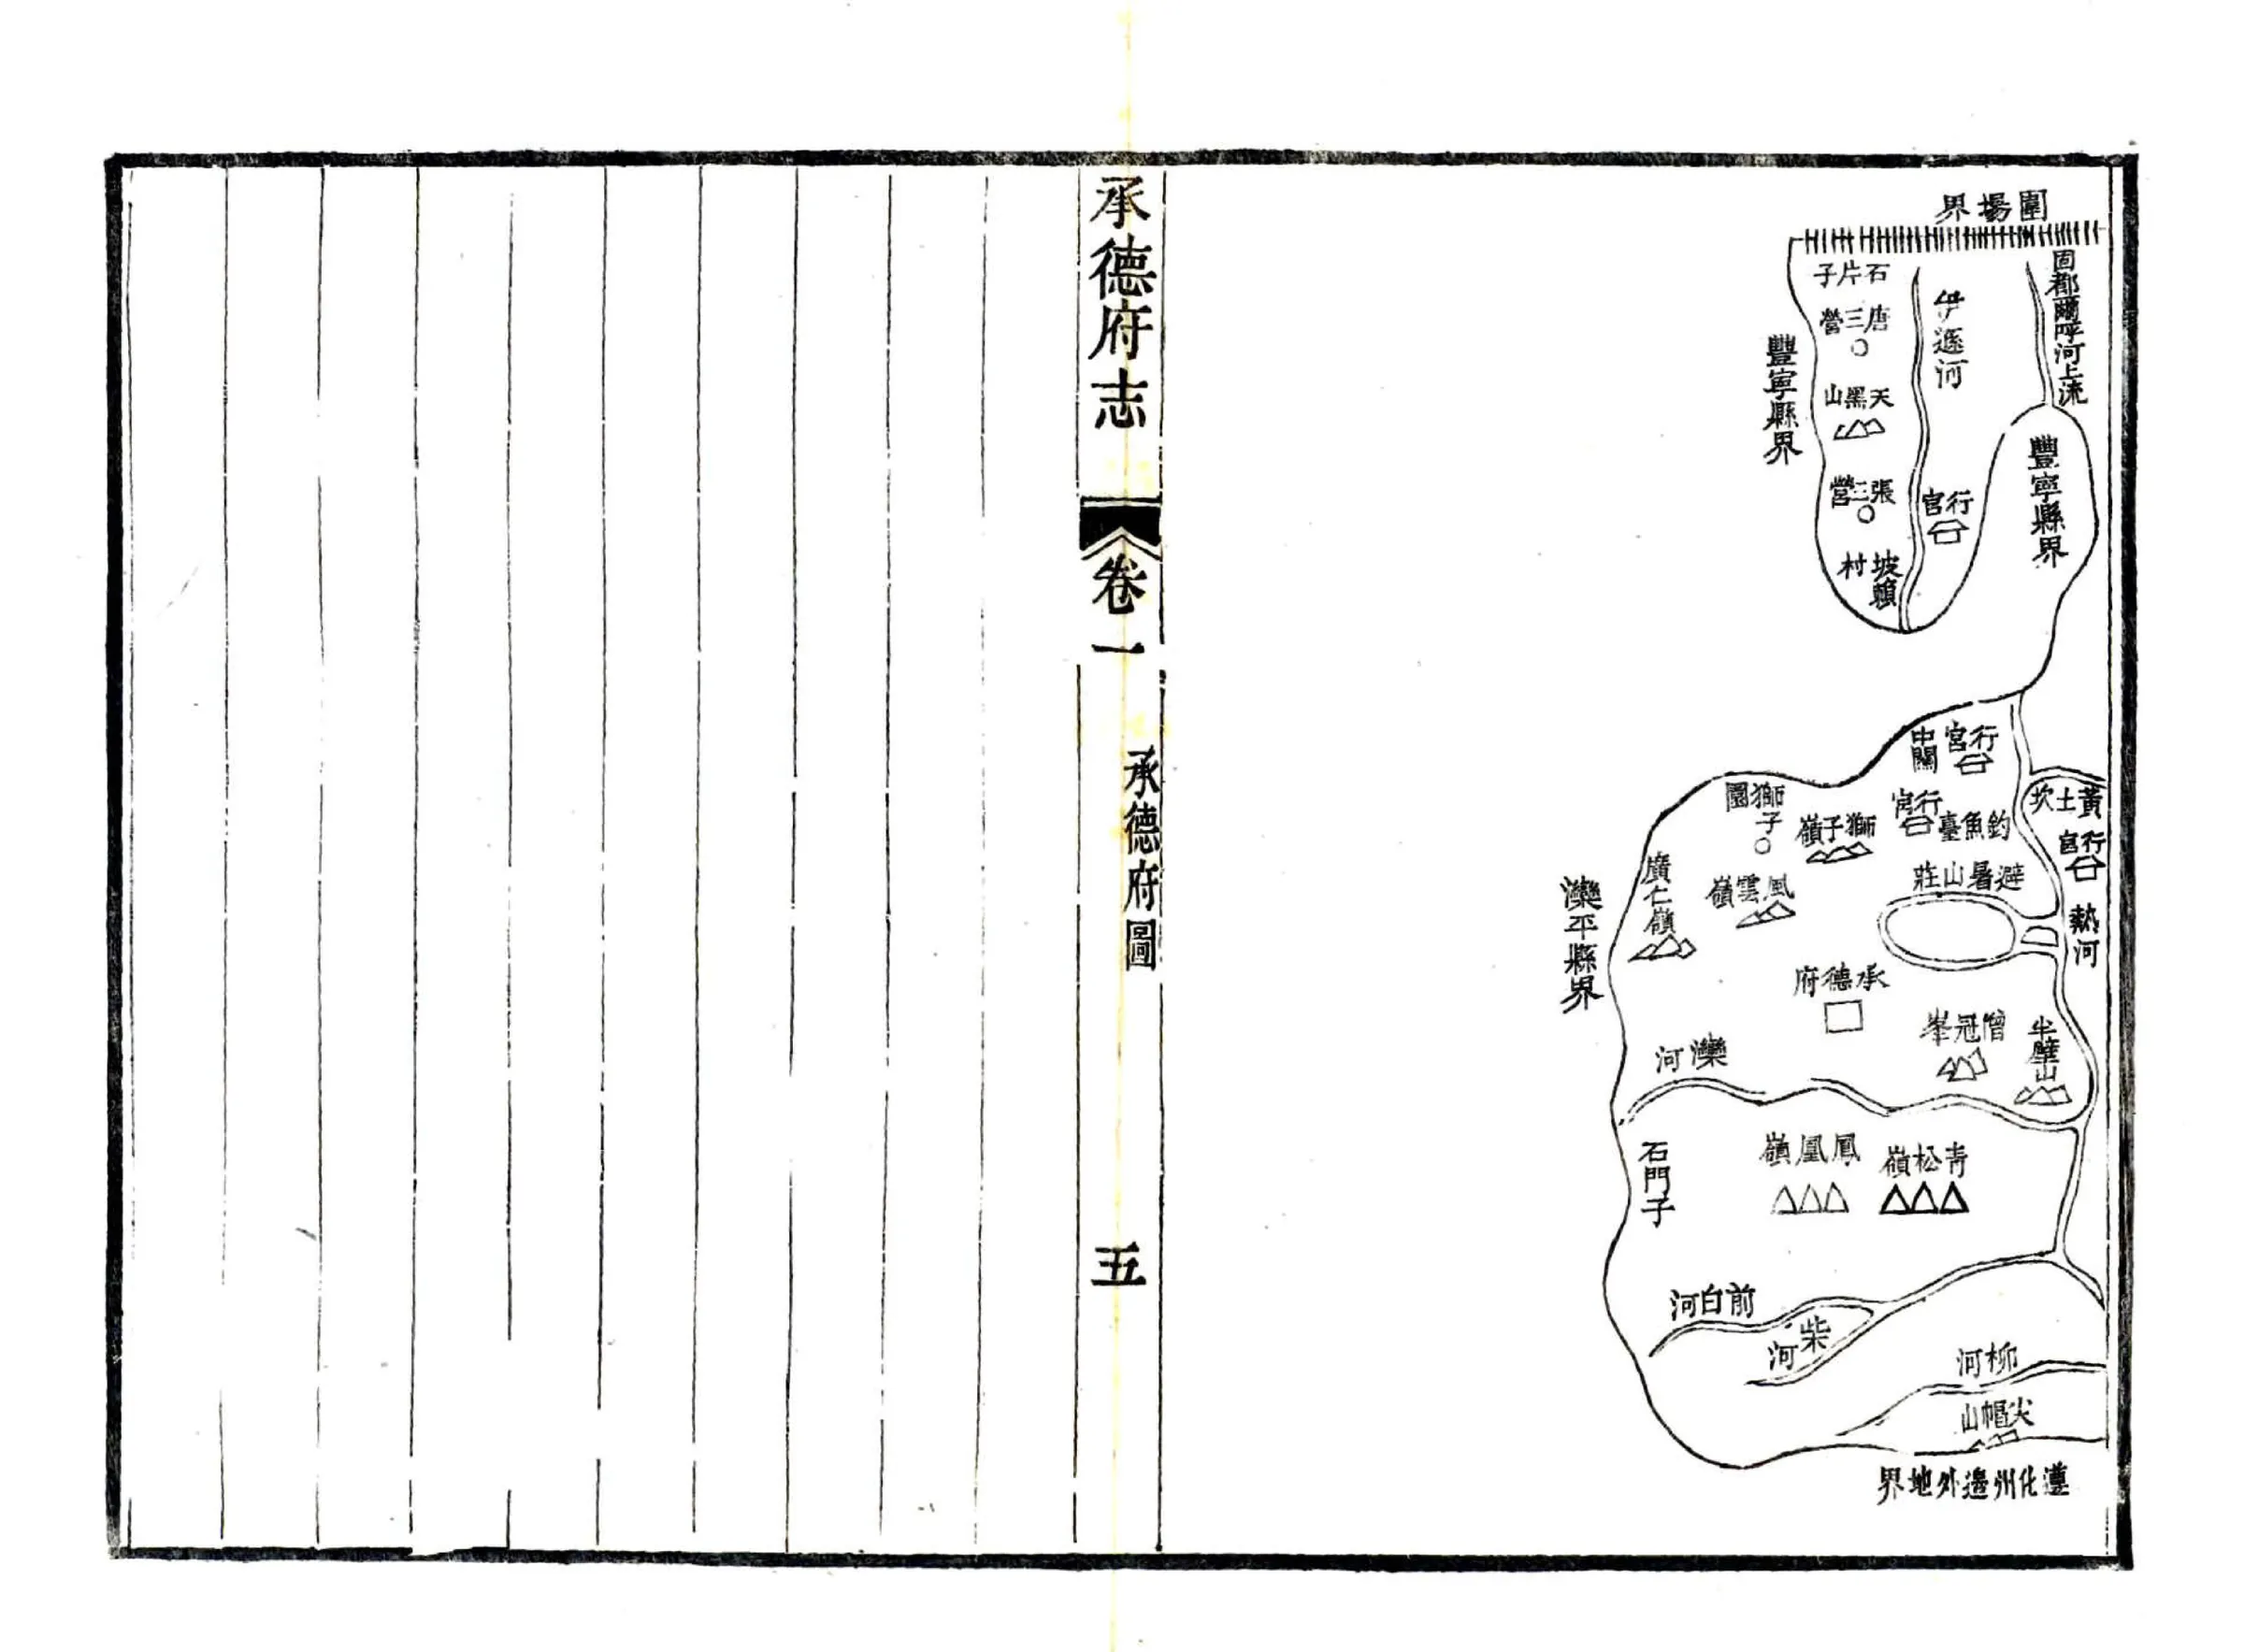 圍場界
固都爾呼河上流
伊遜河
石片子
唐三營
豐寧縣界
天黑山
豐寧縣界
張三營
行宮
坡賴村
行宮
中關
黃土坎
行宮
釣魚臺
行宮
獅子嶺
獅子園
避暑山莊
熱河
風雲嶺
廣仁嶺
灤平縣界
承德府
僧冠峯
半壁山
灤河
青松嶺
鳳凰嶺
石門子
前白河
柴河
柳河
尖帽山
遵化州邊外地界
承德府志
卷一
承德府圖
五